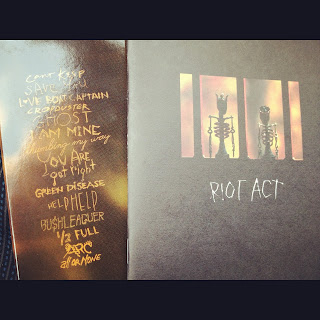 Can't Keep
SAVE YOU
LOVE BOAT CAPTAIN
CROPDUSTER
GHOST
I AM MINE
thumbing my way
YOU ARE
get right
GREEN DISEASE
HELPHELP
BU$HLEAGUER
1/2 FULL
ARC
all or none
RIOT ACT